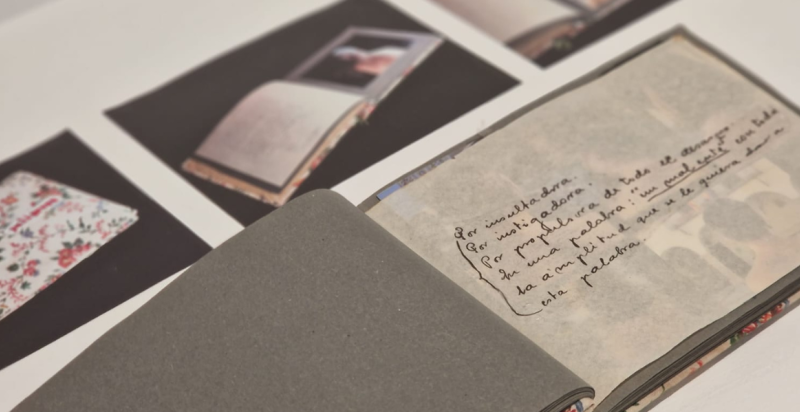 Por insultadora.
Por instigadora.
Por propulsora de todo el desmayo...
En una palabra: "un malqueste" con toda
la amplitud que se le quiera dar a
esta palabra.